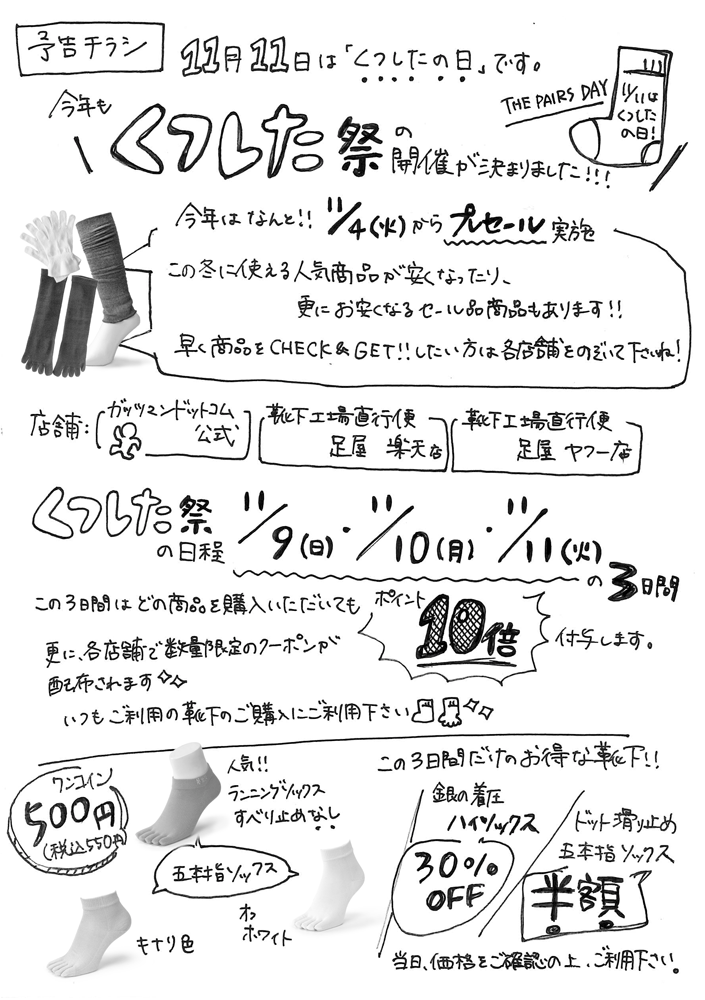 予告チラシ
11月11日は「くつしたの日」です。
THE PAIRS DAY
11/11は
くつした
の日!
今年も
くつした祭の
開催が決まりました!!!
今年はなんと!! 11/4(火)からプレセール実施
この冬に使える人気商品が安くなったり、
更にお安くなるセール品商品もあります!!
早く商品をCHECK&GET!!したい方は各店舗をのぞいて下さいね!
店舗:
ガッツマンドットコム
公式
靴下工場直行便
足屋 楽天店
靴下工場直行便
足屋 ヤフー店
くつした祭
の日程
11/9(日)・11/10(月)・11/11(火)
の3日間
この3日間はどの商品を購入いただいても
ポイント
10倍
付与します。
更に、各店舗で数量限定のクーポンが
配布されます
いつもご利用の靴下のご購入にご利用下さい
ワンコイン
500円
(税込550円)
人気!!
ランニングソックス
すべり止めなし
五本指ソックス
オフ
ホワイト
キナリ色
この3日間だけのお得な靴下!!
銀の着圧
ハイソックス
30%
OFF
ドット滑り止め
五本指ソックス
半額
当日、価格をご確認の上、ご利用下さい。